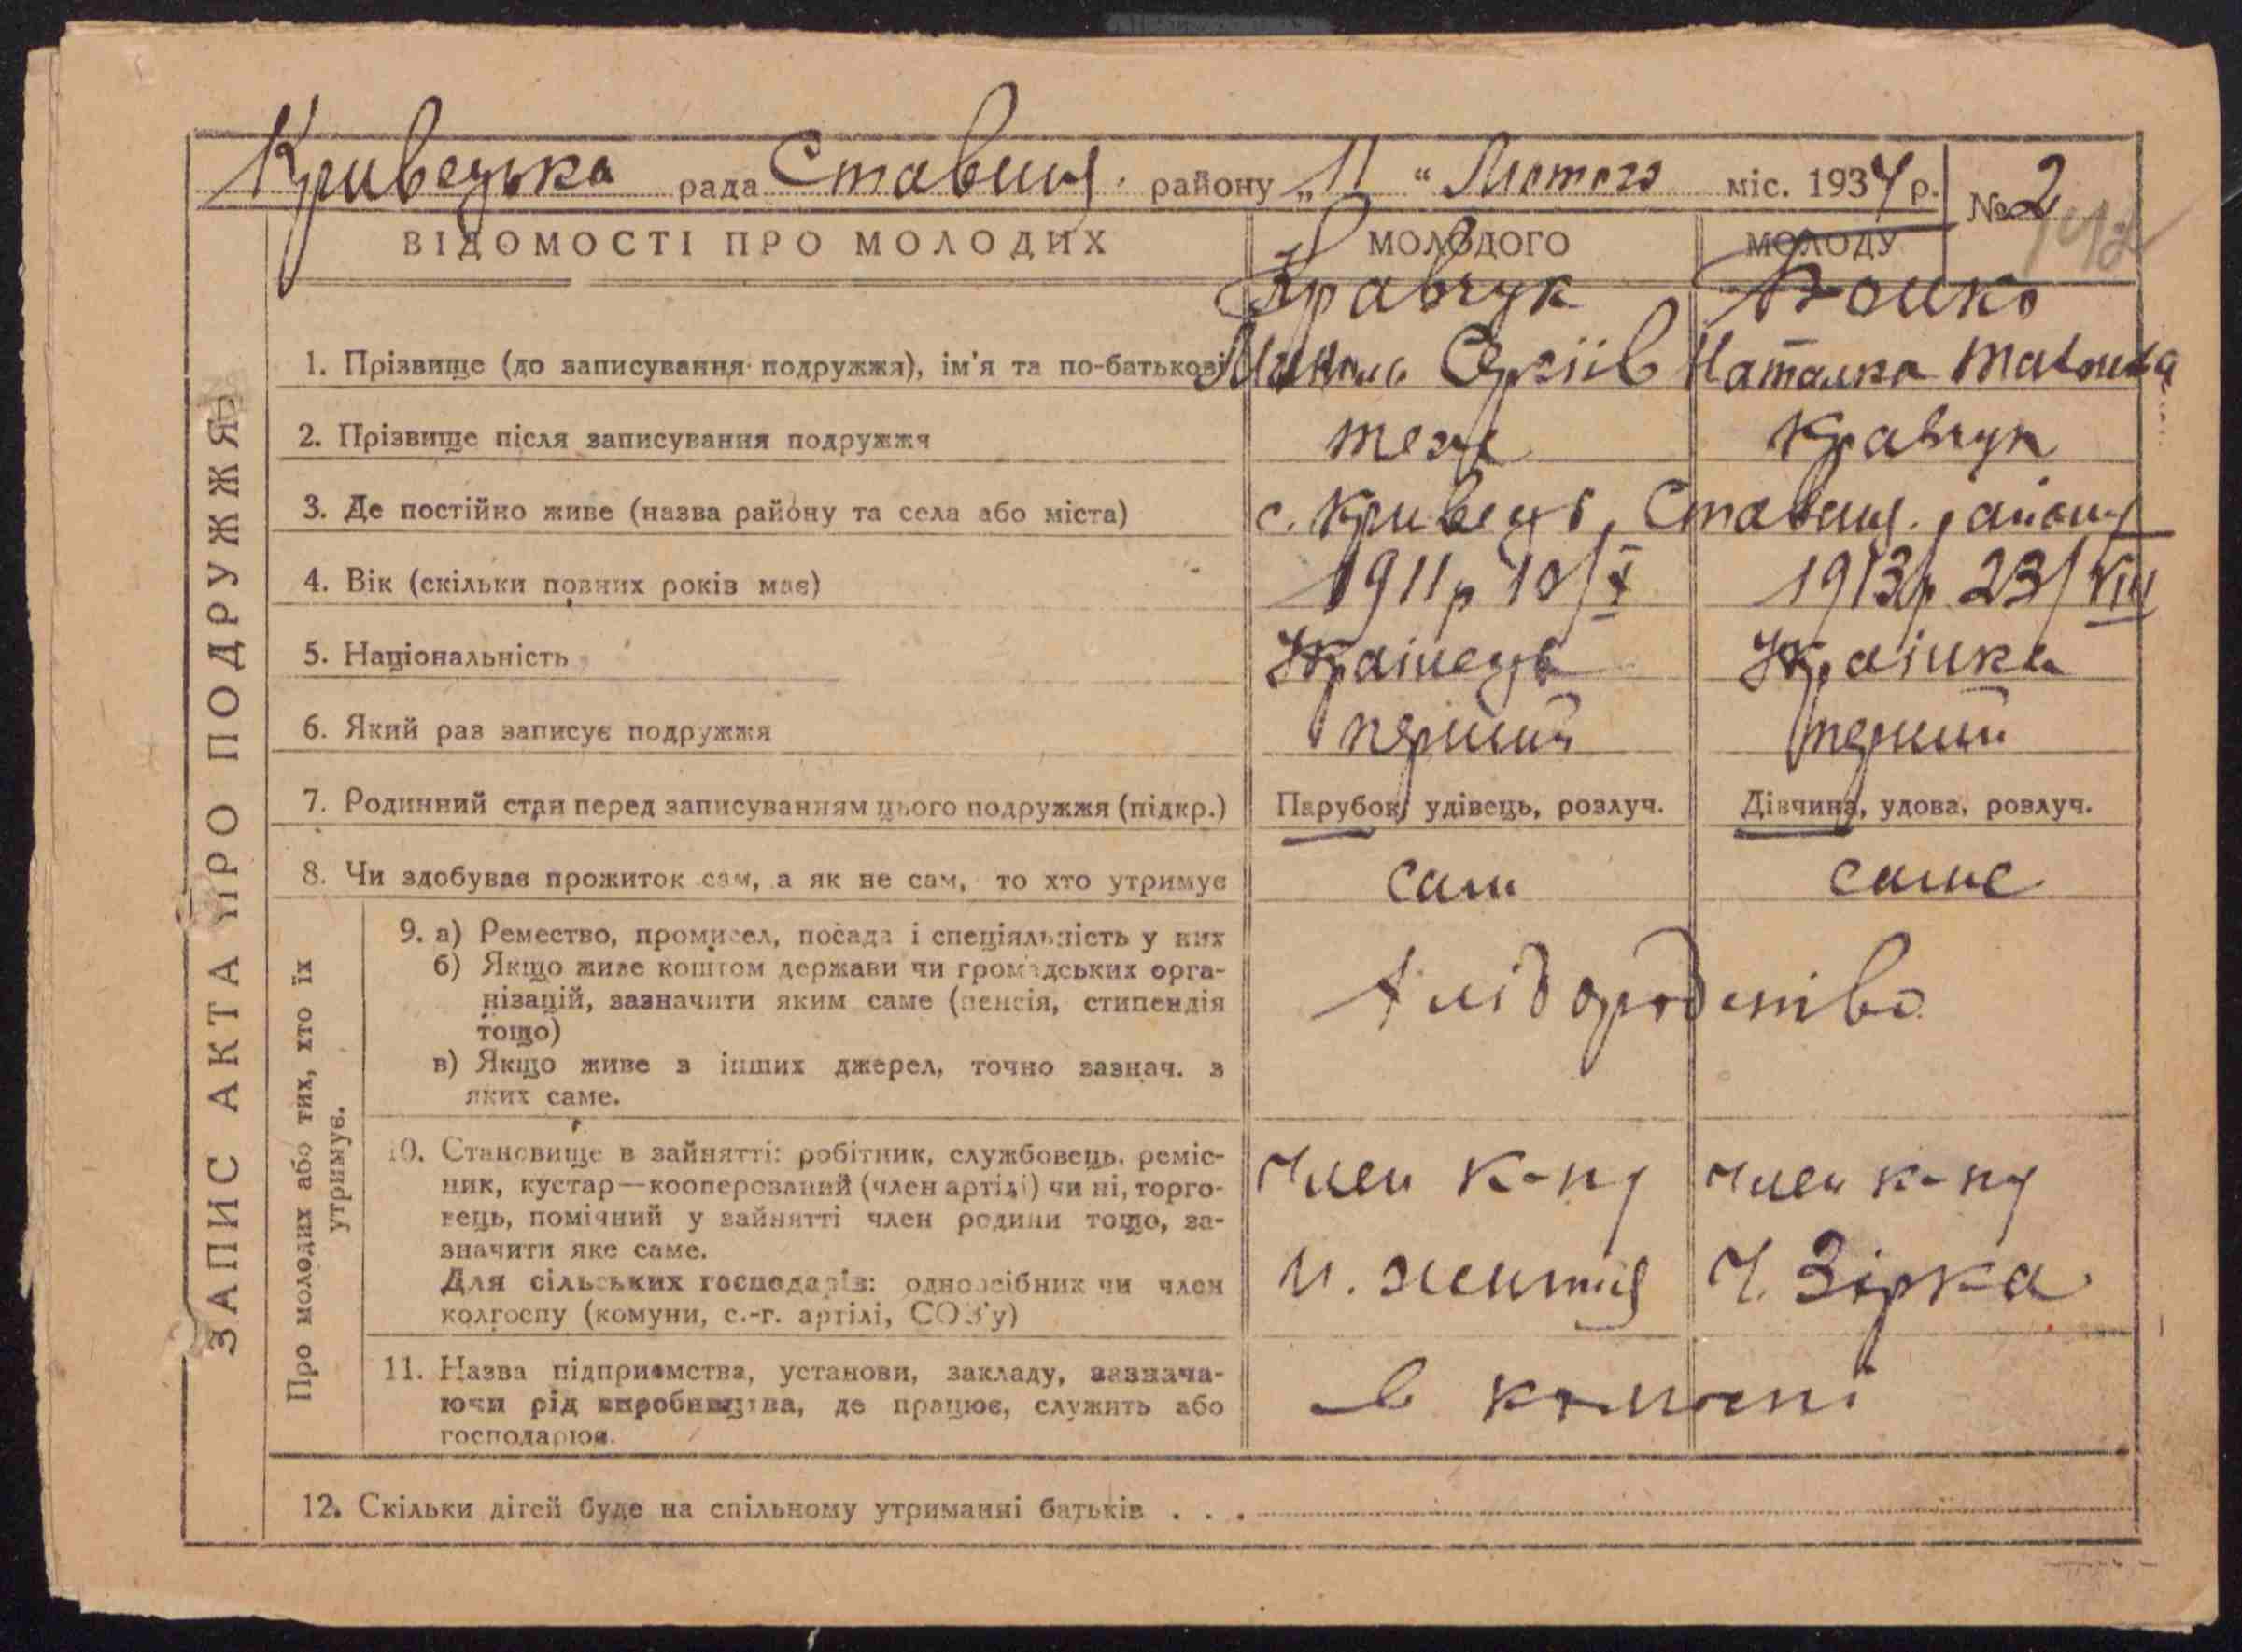 Кривецька рада Ставищ. району „11 “ Лютого міс. 1934 р. № 2
142
ВІДОМОСТІ ПРО МОЛОДИХ МОЛОДОГО МОЛОДУ
Кравчук Бойко
1. Прізвище (до записування подружжя), ім'я та по-батькові Микола Сергіїв Наталка
2. Прізвище після записування подружжя теж Кравчук
3. Де постійно живе (назва району та села або міста) с. Кривець, Ставищ. району
4. Вік (скільки повних років має) 1911 р 10/X 1913 р 23/VIII
5. Національність Українець Українка
6. Який раз записує подружжя перший перший
7. Родинний стан перед записуванням цього подружжя (підкр.) Парубок, удівець, розлуч. Дівчина, удова, розлуч.
8. Чи здобуває прожиток сам, а як не сам, то хто утримує сам саме
ЗАПИС АКТА ПРО ПОДРУЖЖЯ
Про молодих або тих, хто їх утримує.
9. а) Ремество, промисел, посада і спеціяльність у них
б) Якщо живе коштом держави чи громадських орга-
нізацій, зазначити яким саме (пенсія, стипендія
тощо)
Хлібородство
в) Якщо живе з інших джерел, точно зазнач. з
яких саме.
10. Становище в зайнятті: робітник, службовець, реміс-
ник, кустар—кооперований (член артілі) чи ні, торго-
вець, помічний у зайнятті член родини тощо, за-
значити яке саме.
Для сільських господарів: одноосібник чи член
колгоспу (комуни, с.-г. артілі, СОЗ'у)
член к-пу член к-пу
Ч. Зірка
11. Назва підприємства, установи, закладу, зазнача-
ючи рід виробництва, де працює, служить або
господарює.
в колгоспі
12. Скільки дітей буде на спільному утриманні батьків . . .